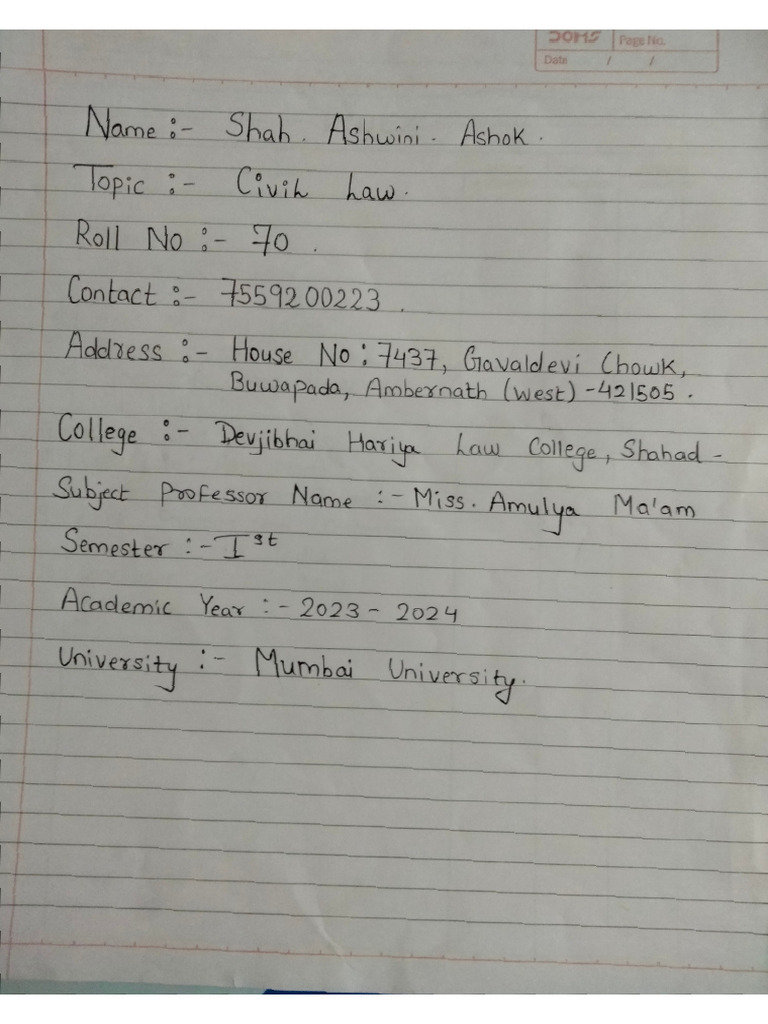 DOMS Page No.
Date / /
Name :- Shah. Ashwini. Ashok.
Topic :- Civil Law.
Roll No :- 70.
Contact :- 7559200223.
Address :- House No: 7437, Gavaldevi Chowk,
Buwapada, Ambernath (west) - 421505.
College :- Devjibhai Hariya Law College, Shahad -
Subject Professor Name :- Miss. Amulya Ma'am
Semester :- Ist
Academic Year :- 2023 - 2024
University :- Mumbai University.